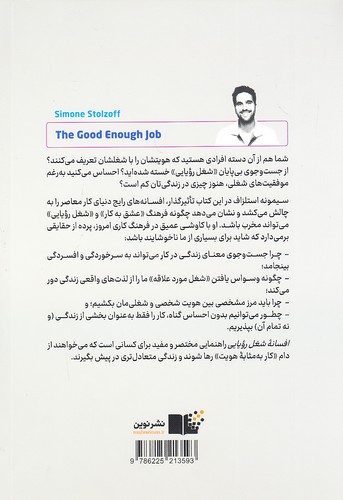 Simone Stolzoff
The Good Enough Job
شما هم از آن دسته افرادی هستید که هویتشان را با شغلشان تعریف می‌کنند؟
از جست‌وجوی بی‌پایان «شغل رؤیایی» خسته شده‌اید؟ احساس می‌کنید به‌رغم
موفقیت‌های شغلی، هنوز چیزی در زندگی‌تان کم است؟
سیمونه استلزاف در این کتاب تأثیرگذار، افسانه‌های رایج دنیای کار معاصر را به
چالش می‌کشد و نشان می‌دهد چگونه فرهنگ «عشق به کار» و «شغل رؤیایی»
می‌تواند مخرب باشد. او با کاوشی عمیق در فرهنگ کاری امروز، پرده از حقایقی
برمی‌دارد که شاید برای بسیاری از ما ناخوشایند باشد:
- چرا جست‌وجوی معنای زندگی در کار می‌تواند به سرخوردگی و افسردگی
بینجامد؛
- چگونه وسواس یافتن «شغل مورد علاقه» ما را از لذت‌های واقعی زندگی دور
می‌کند؛
- چرا باید مرز مشخصی بین هویت شخصی و شغلی‌مان بکشیم؛ و
- چطور می‌توانیم بدون احساس گناه، کار را فقط به‌عنوان بخشی از زندگی (و
نه تمام آن) بپذیریم.
افسانهٔ شغل رؤیایی راهنمایی مختصر و مفید برای کسانی است که می‌خواهند از
دام «کار به‌مثابهٔ هویت» رها شوند و زندگی متعادل‌تری در پیش بگیرند.
نشر نوین
9 786225 213593